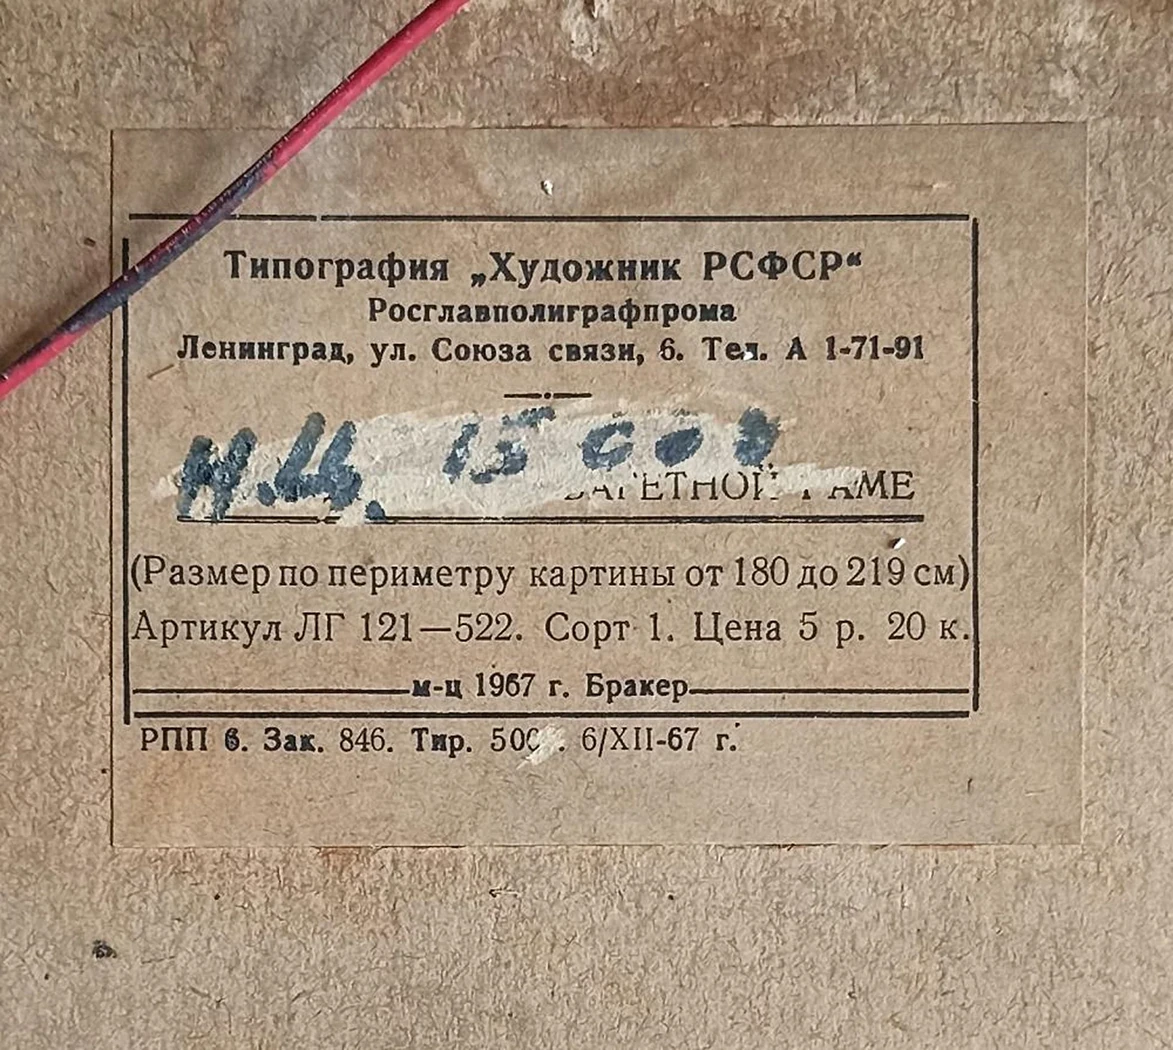 Типография „Художник РСФСР“
Росглавполиграфпрома
Ленинград, ул. Союза связи, 6. Тел. А 1-71-91
Н.Ц. 15 000
БАГЕТНОЙ РАМЕ
(Размер по периметру картины от 180 до 219 см)
Артикул ЛГ 121—522. Сорт 1. Цена 5 р. 20 к.
м-ц 1967 г. Бракер
РПП 6. Зак. 846. Тир. 6/XII-67 г.